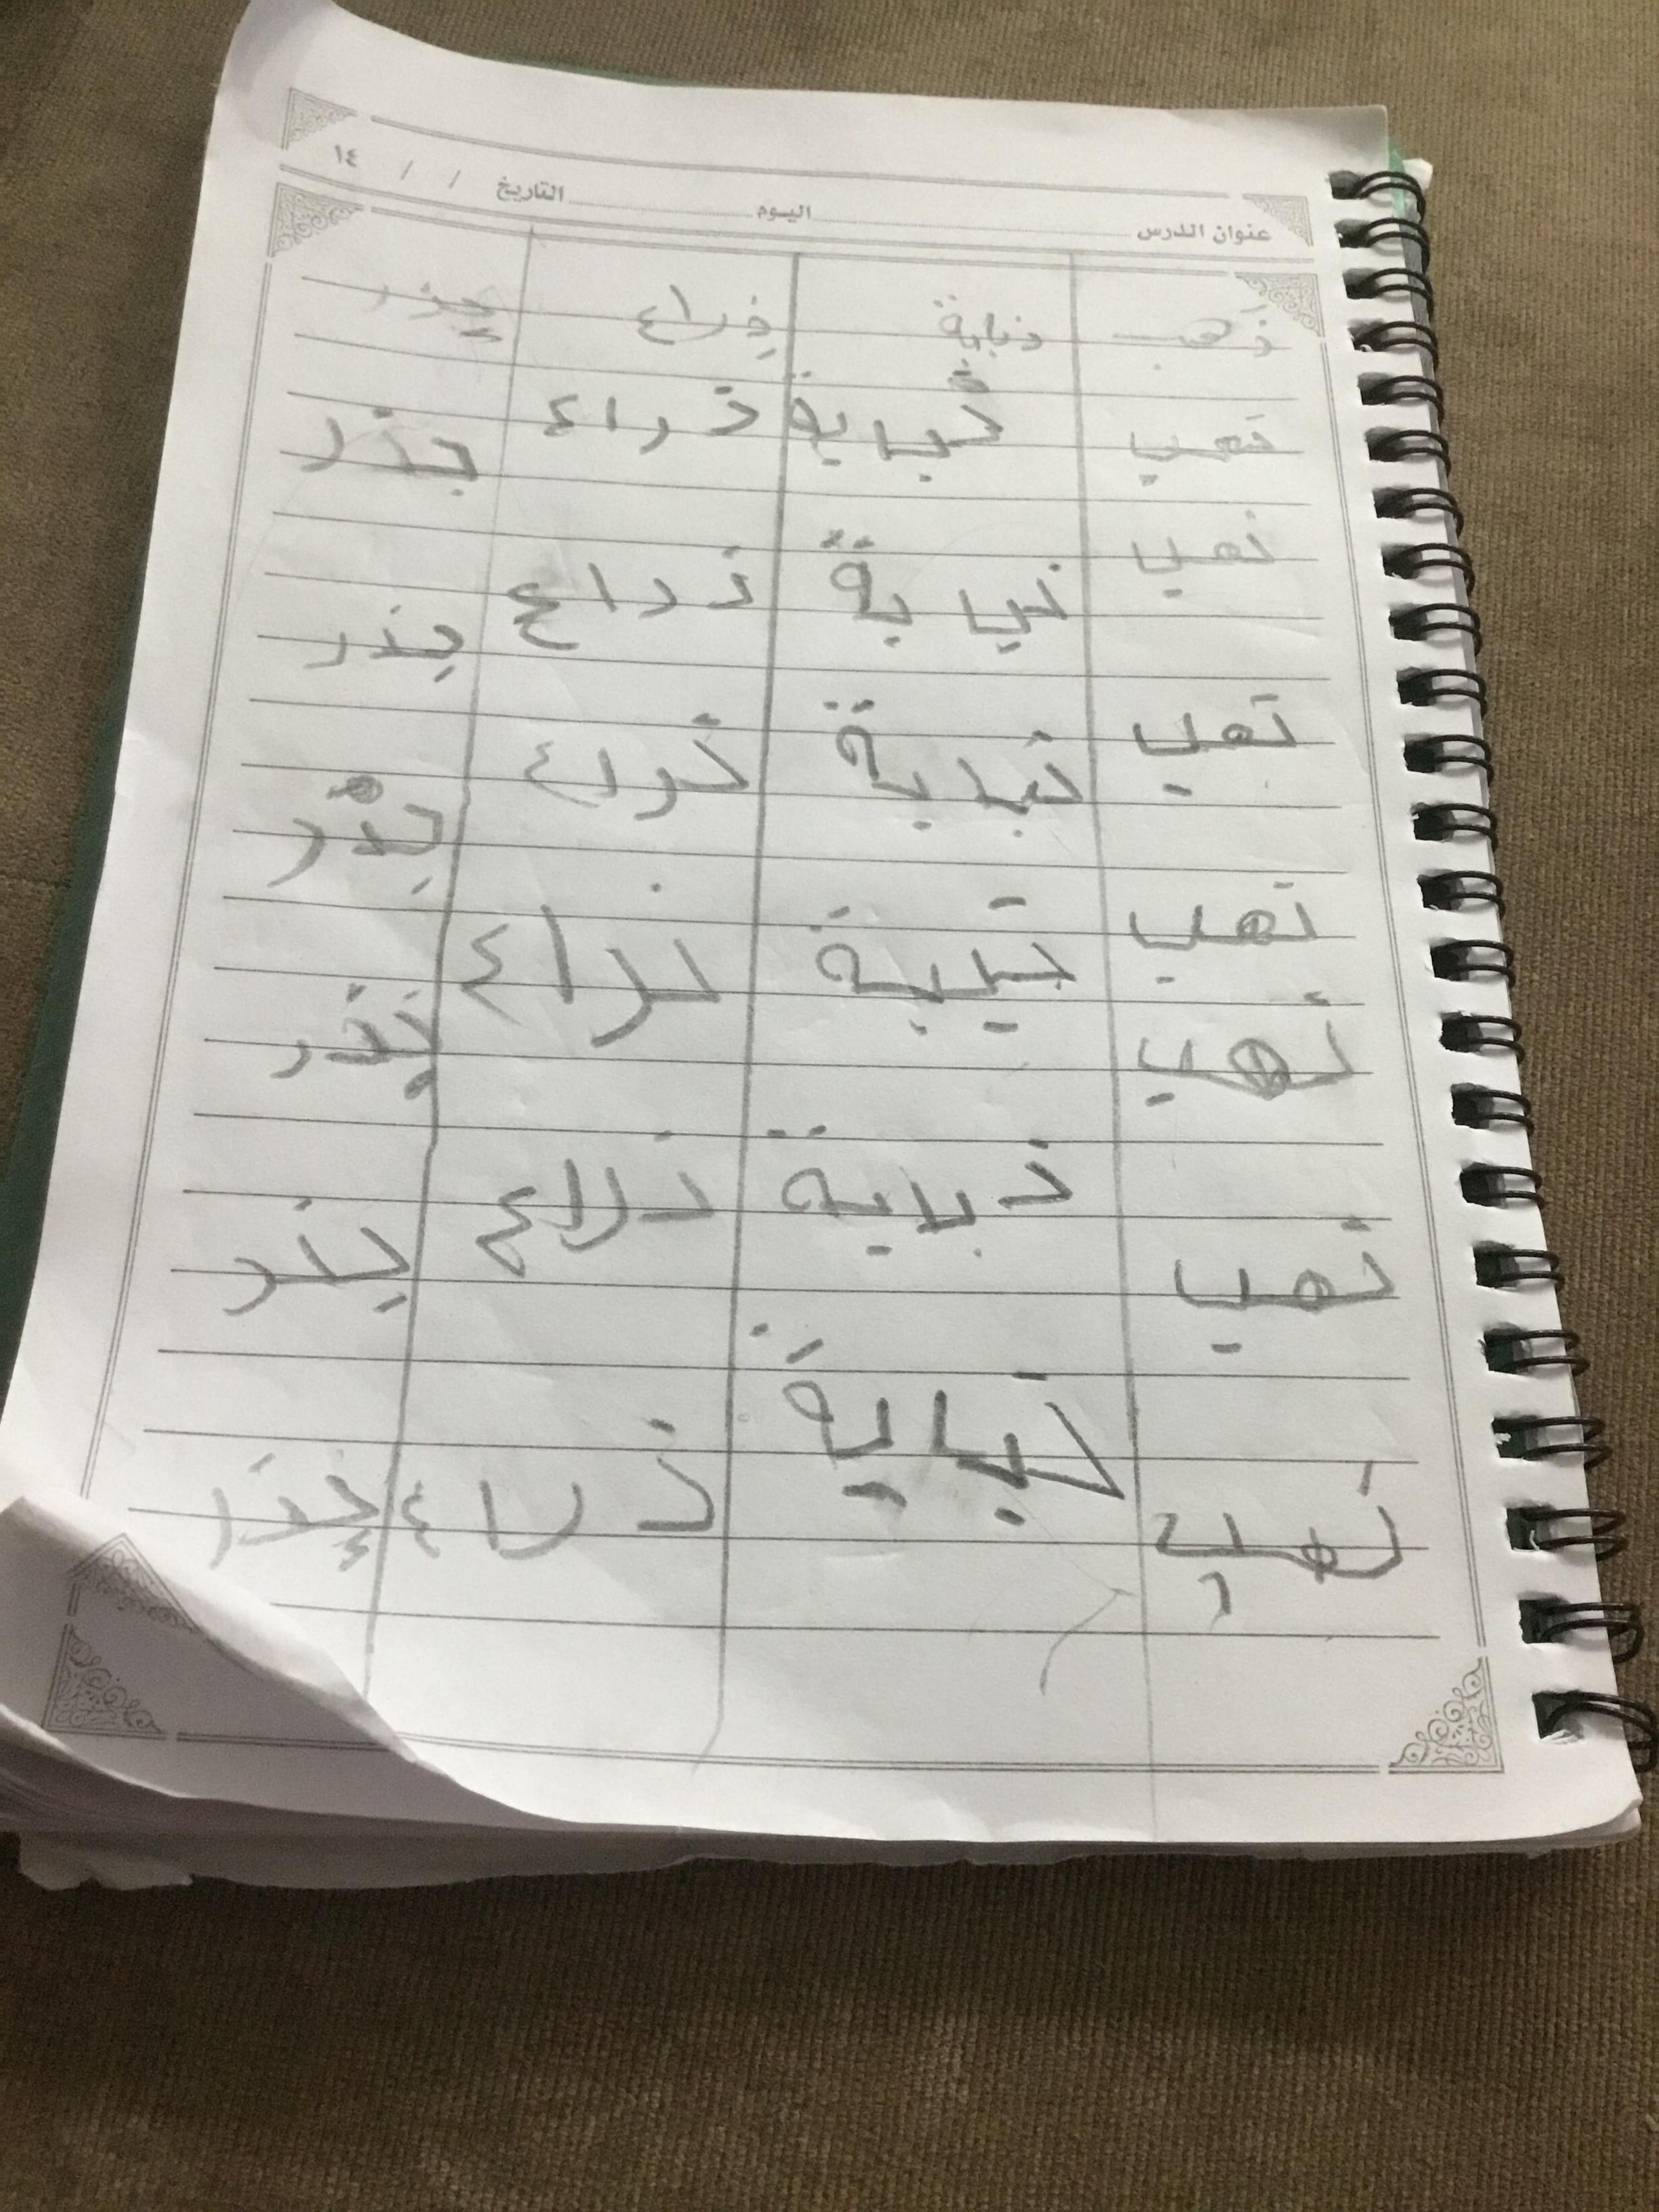 عنوان الدرس اليوم التاريخ / / ١٤
ذَهب ذبابة ذِراع جذر
ذهب ذبابة ذراع جذر
ذهب ذبابة ذراع جذر
ذهب ذبابة ذراع جذر
ذهب ذبابة ذراع جذر
ذهب
ذهب ذبابة ذراع جذر
ذهب ذبابة ذراع جذر